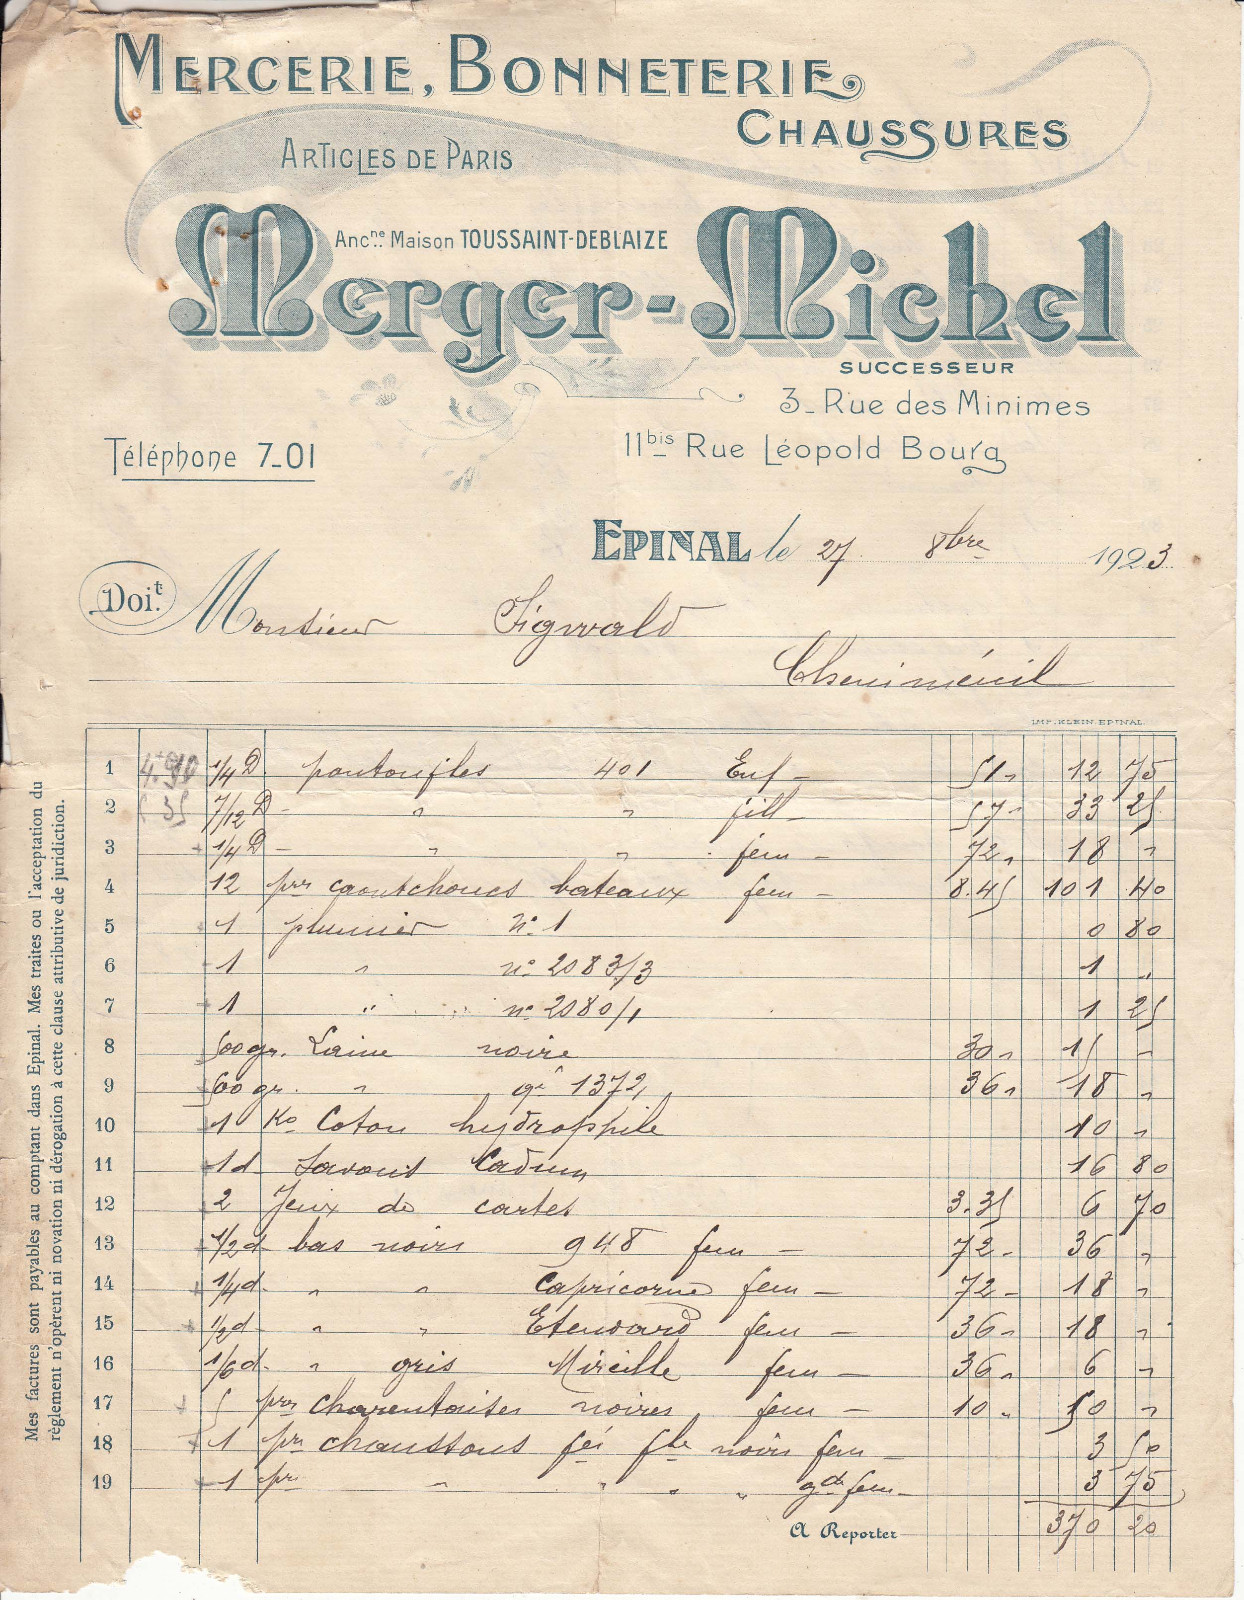 MERCERIE, BONNETERIE
CHAUSSURES
ARTICLES DE PARIS
Anc.ne Maison TOUSSAINT-DEBLAIZE
Merger-Michel
SUCCESSEUR
3_ Rue des Minimes
11bis Rue Léopold Bourg
Téléphone 7_01
EPINAL le 27 8bre 1923
Doi.t Monsieur Sigwald
Cheniménil
IMP. KLEIN. EPINAL.
1 4.90 1/4 D pantoufles 401 Enf – 51 " 12 75
2 5 55 7/12 D – " " fill – 57 " 33 25
3 1/4 D – " " fem – 72 " 18 "
4 12 prs caoutchoucs bateaux fem – 8.45 101 40
5 1 plumier n° 1 0 80
6 1 " n° 2083/3 1 "
7 1 " n° 2080/1 1 25
8 500 gr. Laine noire 30 " 15 "
9 500 gr. " 1372 36 " 18 "
10 1 Ko Coton hydrophile 10 "
11 1 d Savons Cadum 16 80
12 2 Jeux de cartes 3.35 6 70
13 1/2 d bas noirs 948 fem – 72 – 36 "
14 1/4 d " " Capricorne fem – 72 – 18 "
15 1/2 d " " Etendard fem – 36 " 18 "
16 1/6 d " gris Mireille fem – 36 " 6 "
17 5 prs charentaises noires fem – 10 " 50 "
18 1 pr chaussons noirs fem – 3 50
19 1 pr " " " " gde fem – 3 75
A Reporter 370 20
Mes factures sont payables au comptant dans Epinal. Mes traites ou l'acceptation du
règlement n'opèrent ni novation ni dérogation à cette clause attributive de juridiction.